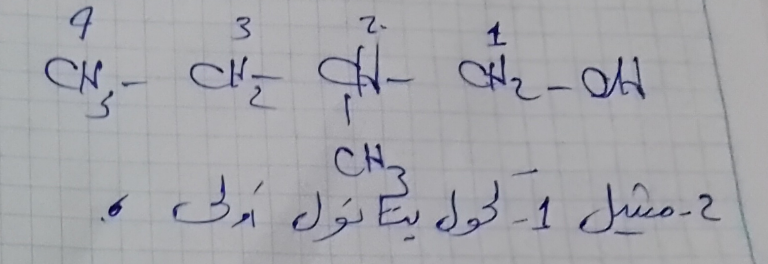 4 3 2 1
CH3 - CH2 - CH - CH2 - OH
CH3
2-مثيل 1- بيتانول أولي